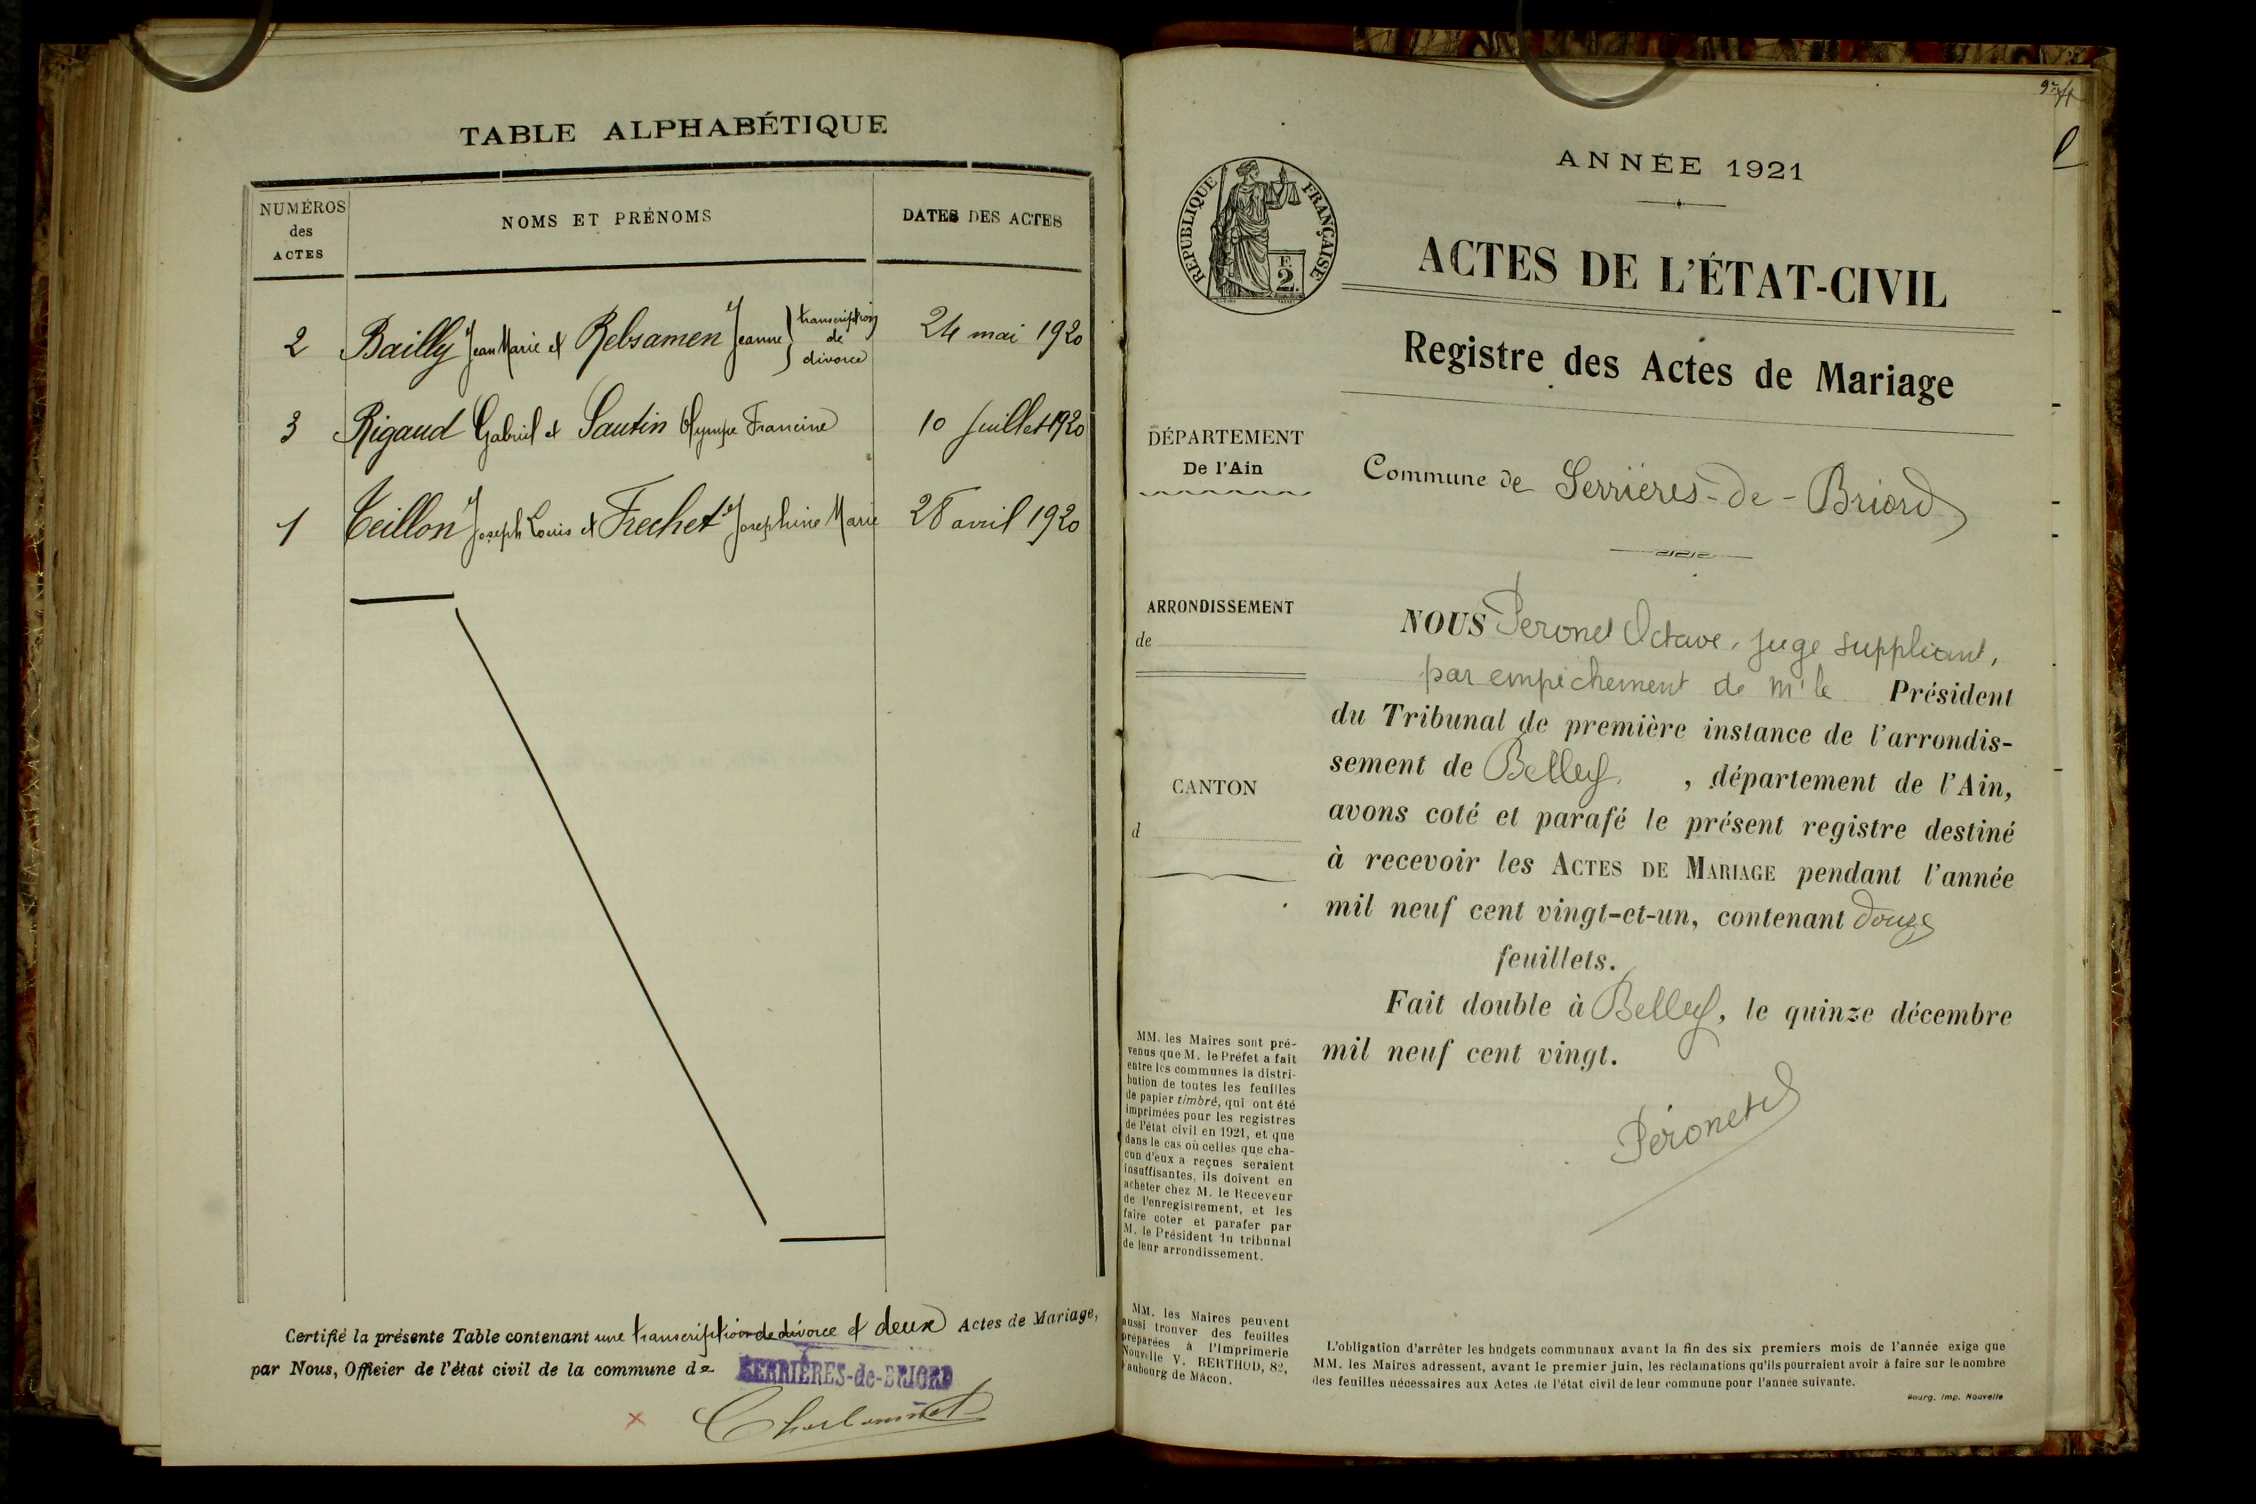 TABLE ALPHABÉTIQUE
NUMÉROS des ACTES
NOMS ET PRÉNOMS
DATES DES ACTES
2 Bailly Jean Marie et Rebsamen Jeanne } transcription de divorce 24 mai 1920
3 Rigaud Gabriel et Sautin Olympe Francine 10 Juillet 1920
1 Teillon Joseph Louis et Frechet Josephine Marie 28 avril 1920
Certifié la présente Table contenant une transcription de divorce et deux Actes de Mariage,
par Nous, Officier de l'état civil de la commune de SERRIÈRES-de-BRIORD
ANNÉE 1921
RÉPUBLIQUE FRANÇAISE
F.
2.
ACTES DE L'ÉTAT-CIVIL
Registre des Actes de Mariage
DÉPARTEMENT
De l'Ain
Commune de Serrières-de-Briord
ARRONDISSEMENT
de
CANTON
d
NOUS Peronet Octave, juge suppléant,
par empêchement de Mr le Président
du Tribunal de première instance de l'arrondis-
sement de Belley, département de l'Ain,
avons coté et parafé le présent registre destiné
à recevoir les ACTES DE MARIAGE pendant l'année
mil neuf cent vingt-et-un, contenant douze
feuillets.
Fait double à Belley, le quinze décembre
mil neuf cent vingt.
Péronet
MM. les Maires sont pré-
venus que M. le Préfet a fait
entre les communes la distri-
bution de toutes les feuilles
de papier timbré, qui ont été
imprimées pour les registres
de l'état civil en 1921, et que
dans le cas où celles que cha-
cun d'eux a reçues seraient
insuffisantes, ils doivent en
acheter chez M. le Receveur
de l'enregistrement, et les
faire coter et parafer par
M. le Président du tribunal
de leur arrondissement.
MM. les Maires peuvent
aussi trouver des feuilles
préparées à l'Imprimerie
Nouvelle V. BERTHOD, 82,
faubourg de Mâcon.
L'obligation d'arrêter les budgets communaux avant la fin des six premiers mois de l'année exige que
MM. les Maires adressent, avant le premier juin, les réclamations qu'ils pourraient avoir à faire sur le nombre
des feuilles nécessaires aux Actes de l'état civil de leur commune pour l'année suivante.
Bourg, Imp. Nouvelle